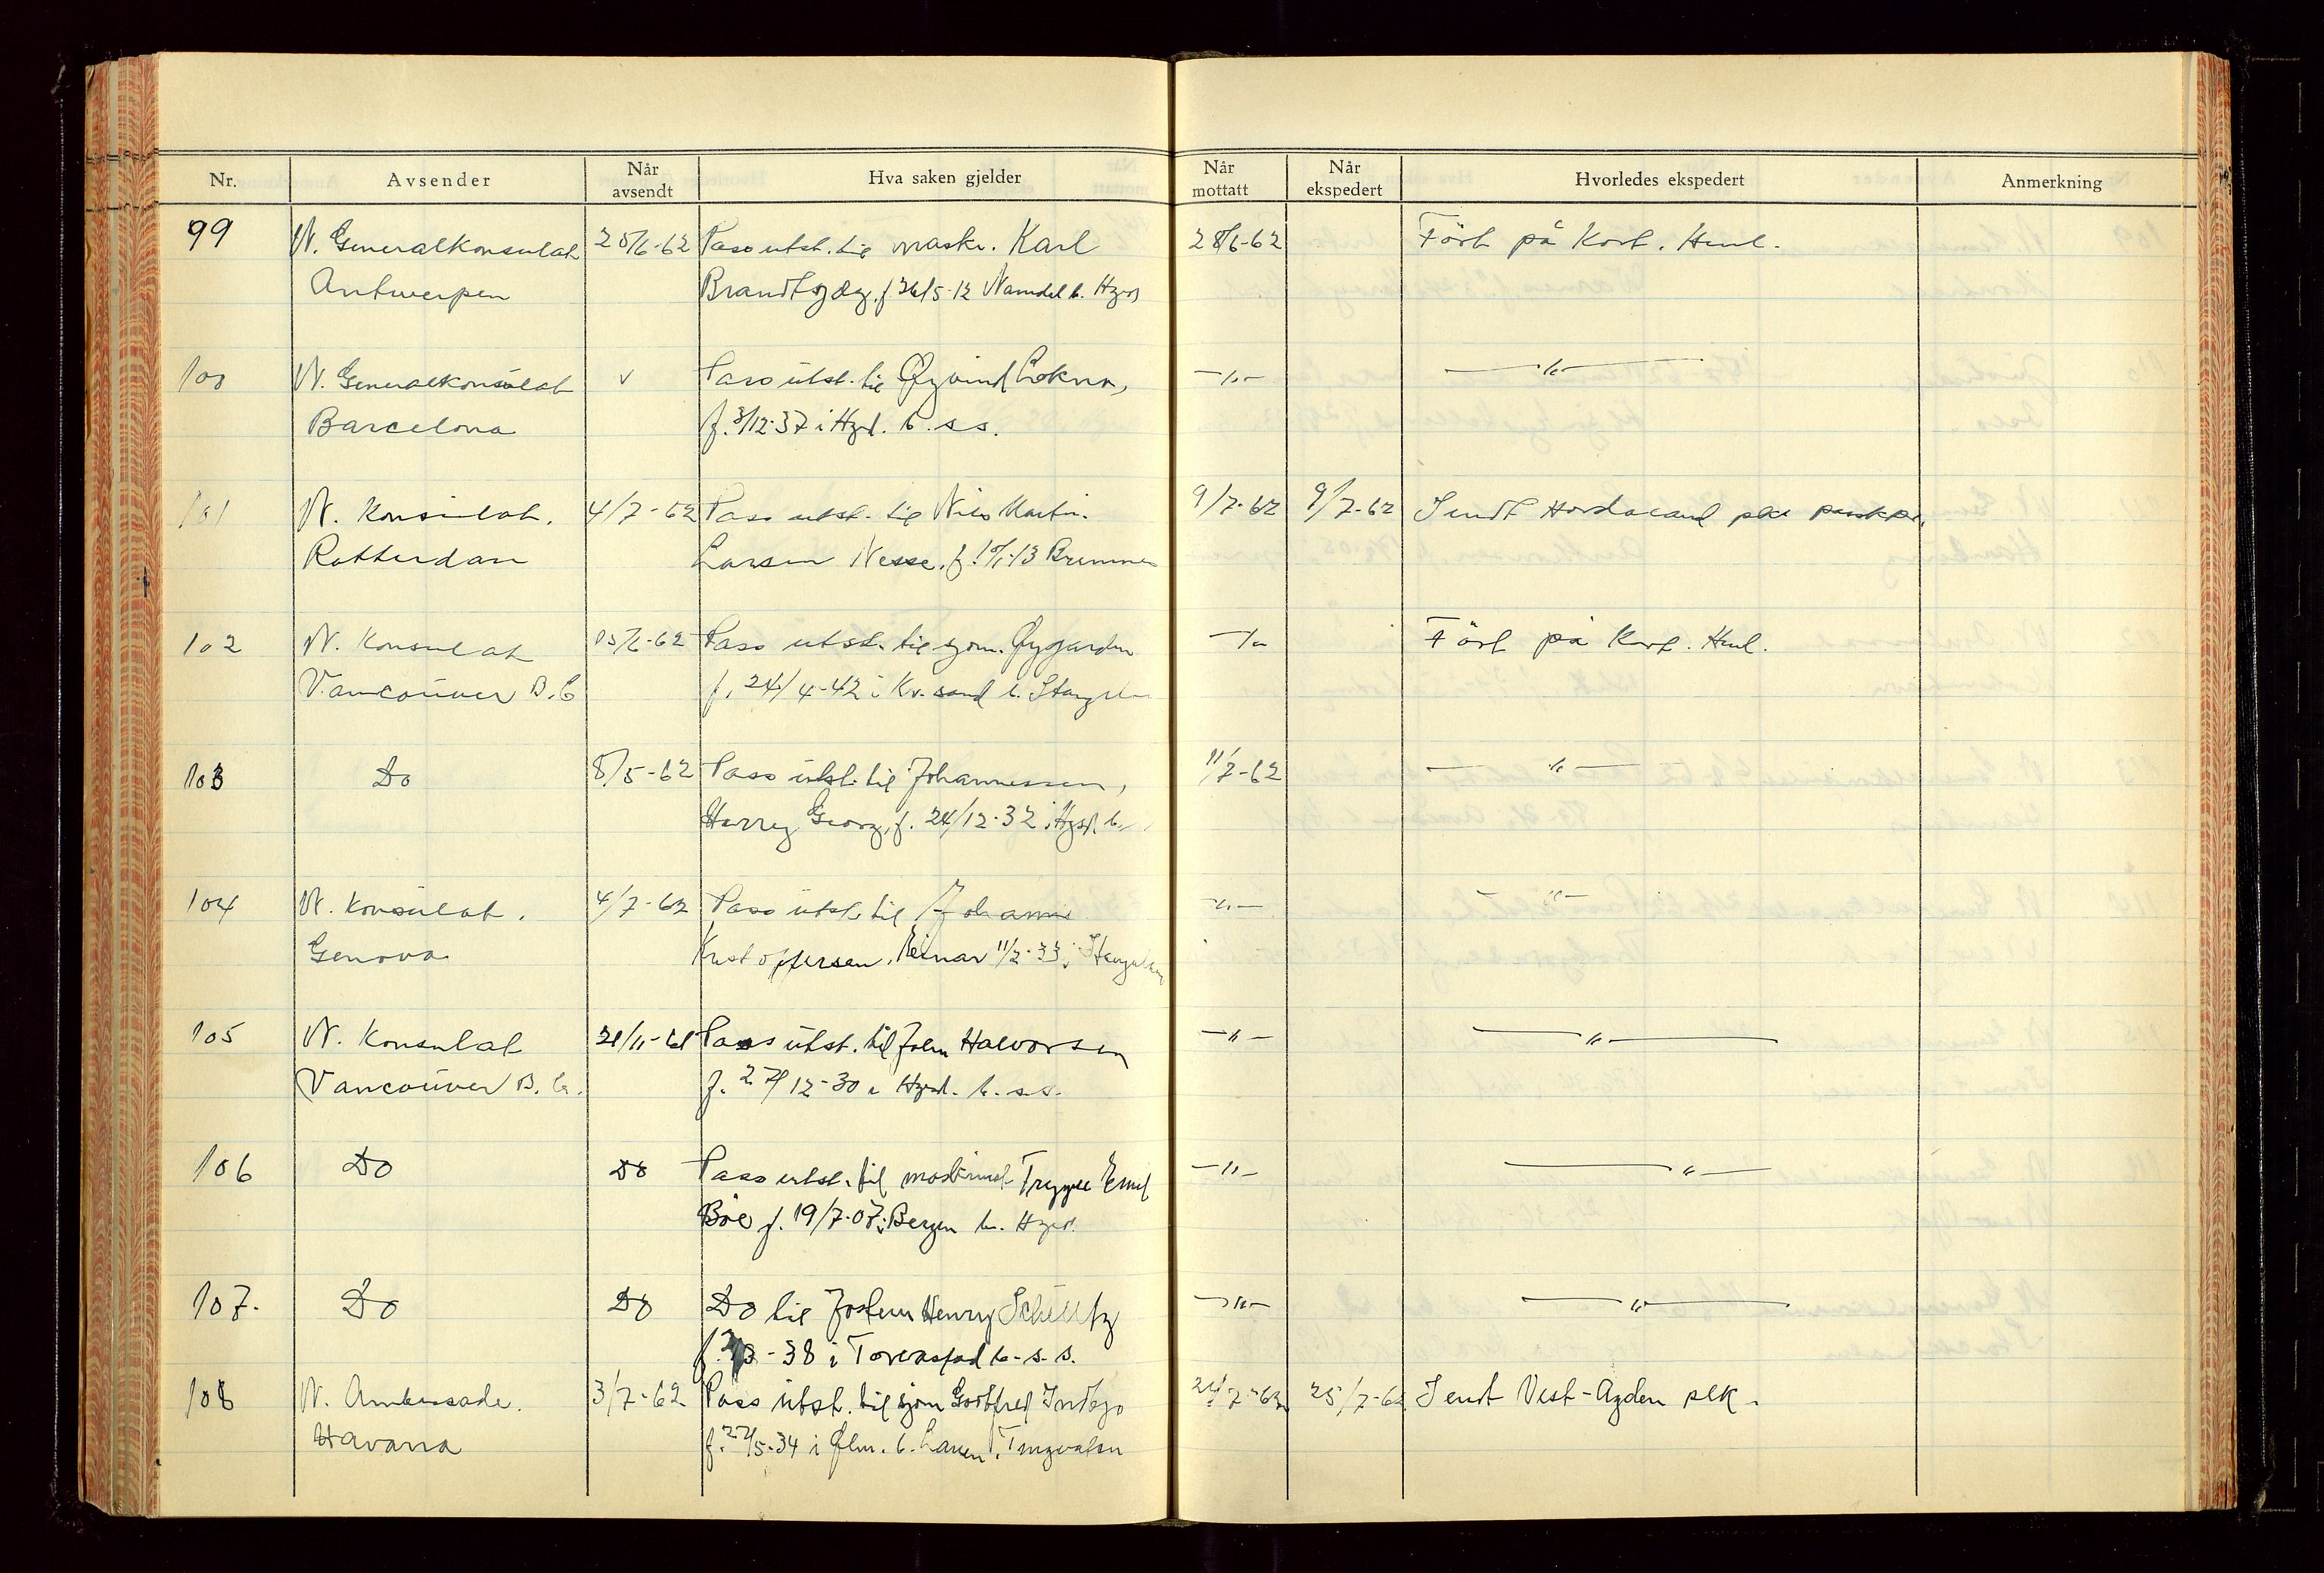 Nr. Avsender Når avsendt Hva saken gjelder Når mottatt Når ekspedert Hvorledes ekspedert Anmerkning
99 N. Generalkonsulat 25/6-62 Pass utst. til mask. Karl 28/6-62 Fört på Kort. Henl.
Antwerpen Brandtzæg, f. 26/5-12 Namdal b. Hgsd
100 N. Generalkonsulat v Pass utst. til Øyvind Lokna, -"- -"-
Barcelona f. 3/12-37 i Hgsd. b. s.s.
101 N. Konsulat. 4/7-62 Pass utst. til Nils Martin 9/7-62 9/7-62 Sendt Hordaland
Rotterdam Larsen Nesse, f. Bremnes
102 N. Konsulat 15/6-62 Pass utst. til sjøm. Øygarden -"- Fört på Kort. Henl.
Vancouver B.C f. 24/4-42 i Kr.sand b.
103 Do 8/5-62 Pass utst. til Johannessen, 11/7-62 -"-
Harry Georg, f. 24/12-32 i Hgsd b.
104 N. Konsulat. 4/7-62 Pass utst. til -"- -"-
Genova Kristoffersen, Einar 11/2-33 i
105 N. Konsulat 21/11-61 Pass utst. til John Halvorsen -"- -"-
Vancouver B.C. f. 27/12-30 i Hgsd. b. s.s.
106 Do Do Pass utst. til Trygve Emil -"- -"-
Böe f. 19/7-07 i Bergen b. Hgsd.
107. Do Do Do til Jostein Henry Schultz -"- -"-
-38 i Torvastad b. s.s.
108 N. Ambassade. 3/7-62 Pass utst. til sjøm Godtfred 24/7-62 25/7-62 Sendt Vest-Agder plk.
Havana f. 27/5-34 i b. Tingvatn